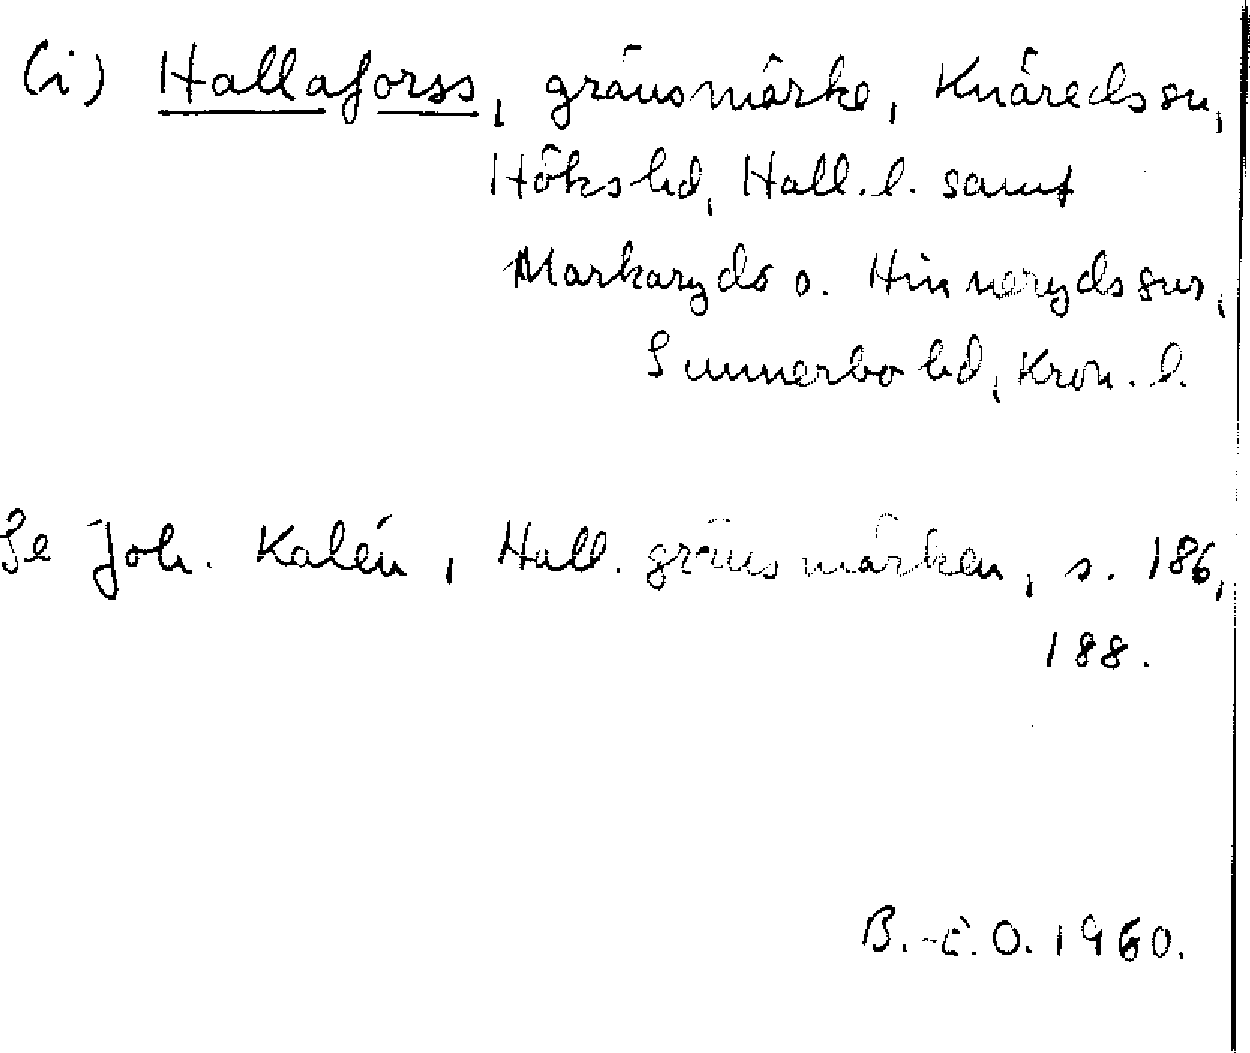 (i) Hallaforss, gränsmärke, Knäreds sn,
Höks hd, Hall. l. samt
Markaryds o. Hinneryds snr,
Sunnerbo hd, Kron. l.
Se Joh. Kalén, Hall. gränsmärken, s. 186,
188.
B.-E. O. 1960.